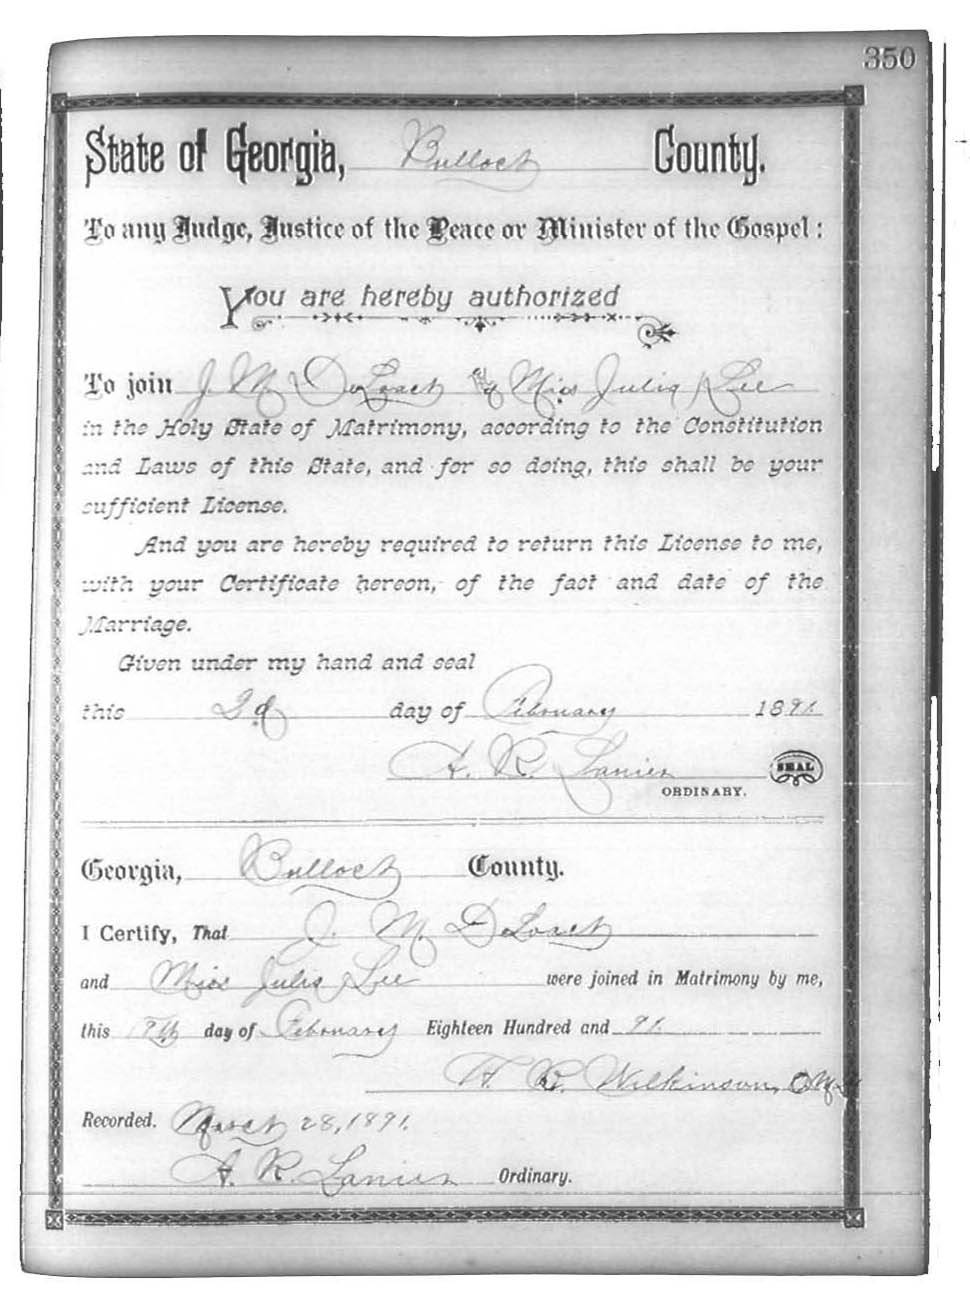 350
State of Georgia, Bulloch County.
To any Judge, Justice of the Peace or Minister of the Gospel:
You are hereby authorized
To join J. M. DeLoach & Miss Julia Lee
in the Holy State of Matrimony, according to the Constitution
and Laws of this State, and for so doing, this shall be your
sufficient License.
And you are hereby required to return this License to me,
with your Certificate hereon, of the fact and date of the
Marriage.
Given under my hand and seal
this day of February 1891
A. R. Lanier SEAL
ORDINARY.
Georgia, Bulloch County.
I Certify, That J. M. DeLoach
and Miss Julia Lee were joined in Matrimony by me,
this day of February Eighteen Hundred and 91
R. Wilkinson,
Recorded. March 28, 1891.
A. R. Lanier Ordinary.